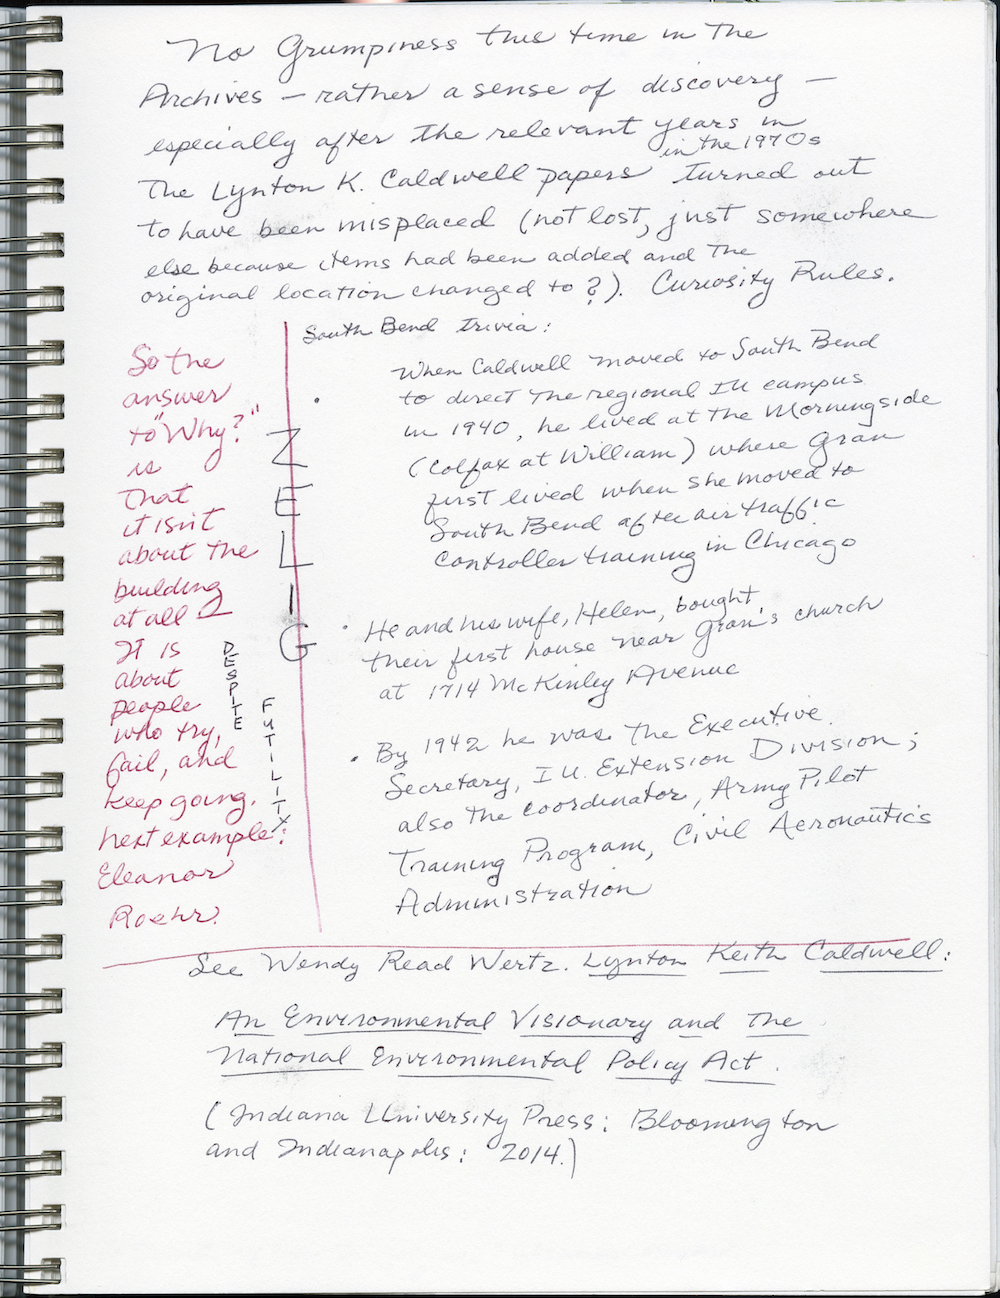 No Grumpiness this time in the
Archives – rather a sense of discovery –
especially after the relevant years in
in the 1970s
The Lynton K. Caldwell papers turned out
to have been misplaced (not lost, just somewhere
else because items had been added and the
original location changed to ?). Curiosity Rules.
South Bend trivia:
So the
answer
to "Why?"
is
that
it isn't
about the
building
at all –
It is
about
people
who try,
fail, and
keep going.
next example:
Eleanor
Roehr.
DESPITE
FUTILITY
ZELIG
• When Caldwell moved to South Bend
to direct the regional IU campus
in 1940, he lived at the Morningside
(Colfax at William) where Gran
first lived when she moved to
South Bend after air traffic
controller training in Chicago
• He and his wife, Helen, bought
their first house near Gran's church
at 1714 McKinley Avenue
• By 1942 he was the Executive
Secretary, I.U. Extension Division;
also the coordinator, Army Pilot
Training Program, Civil Aeronautics
Administration
See Wendy Read Wertz. Lynton Keith Caldwell:
An Environmental Visionary and the
National Environmental Policy Act.
(Indiana University Press: Bloomington
and Indianapolis: 2014.)